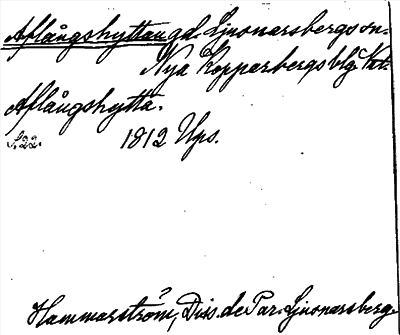 Aflångshyttan gd. Ljusnarsbergs sn.
Nya Kopparbergs blg. Vstm.
Aflångshytta.
S. 22.
1812 Ups.
Hammarström, Diss. de Par. Ljusnarsberg.